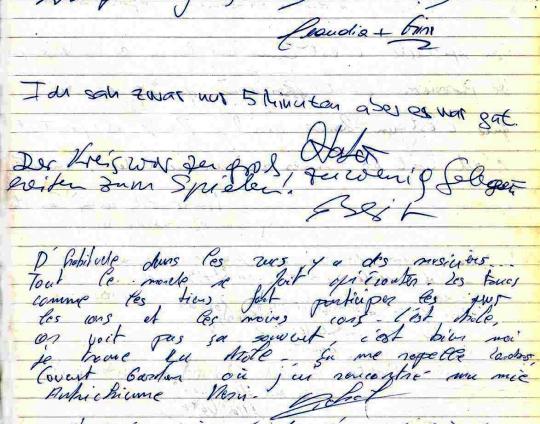 Claudia +
Ich sah zwar nur 5 Minuten aber es war gut.
Der Kreis war zu groß, zu wenig Gelegen
heiten zum Spielen!
D'habitude dans les rues y a des musiciens...
Tout le monde se fait qu'écouter. Les trucs
comme les tiens font participer les gens
les uns et les moins cons. C'est drôle,
on voit pas ça souvent, c'est bien moi
je trouve ça drôle. Ça me rappelle Londres,
Covent Garden où j'ai rencontré mon amie
Autrichienne